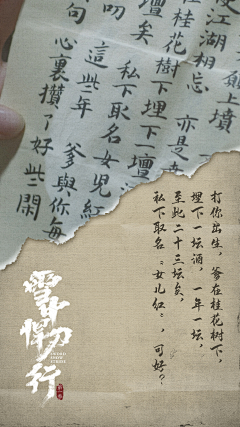 江湖相忘 亦是
在桂花樹下埋下一壇
壇矣 私下取名女兒紅
叨 這些年 爹與你每
句 心裏攢了好些閑
打你出生，爹在桂花树下，
埋下一坛酒，一年一坛，
至此二十三坛矣，
私下取名“女儿红”，可好？
雪中悍刀行
SWORD SNOW STRIDE